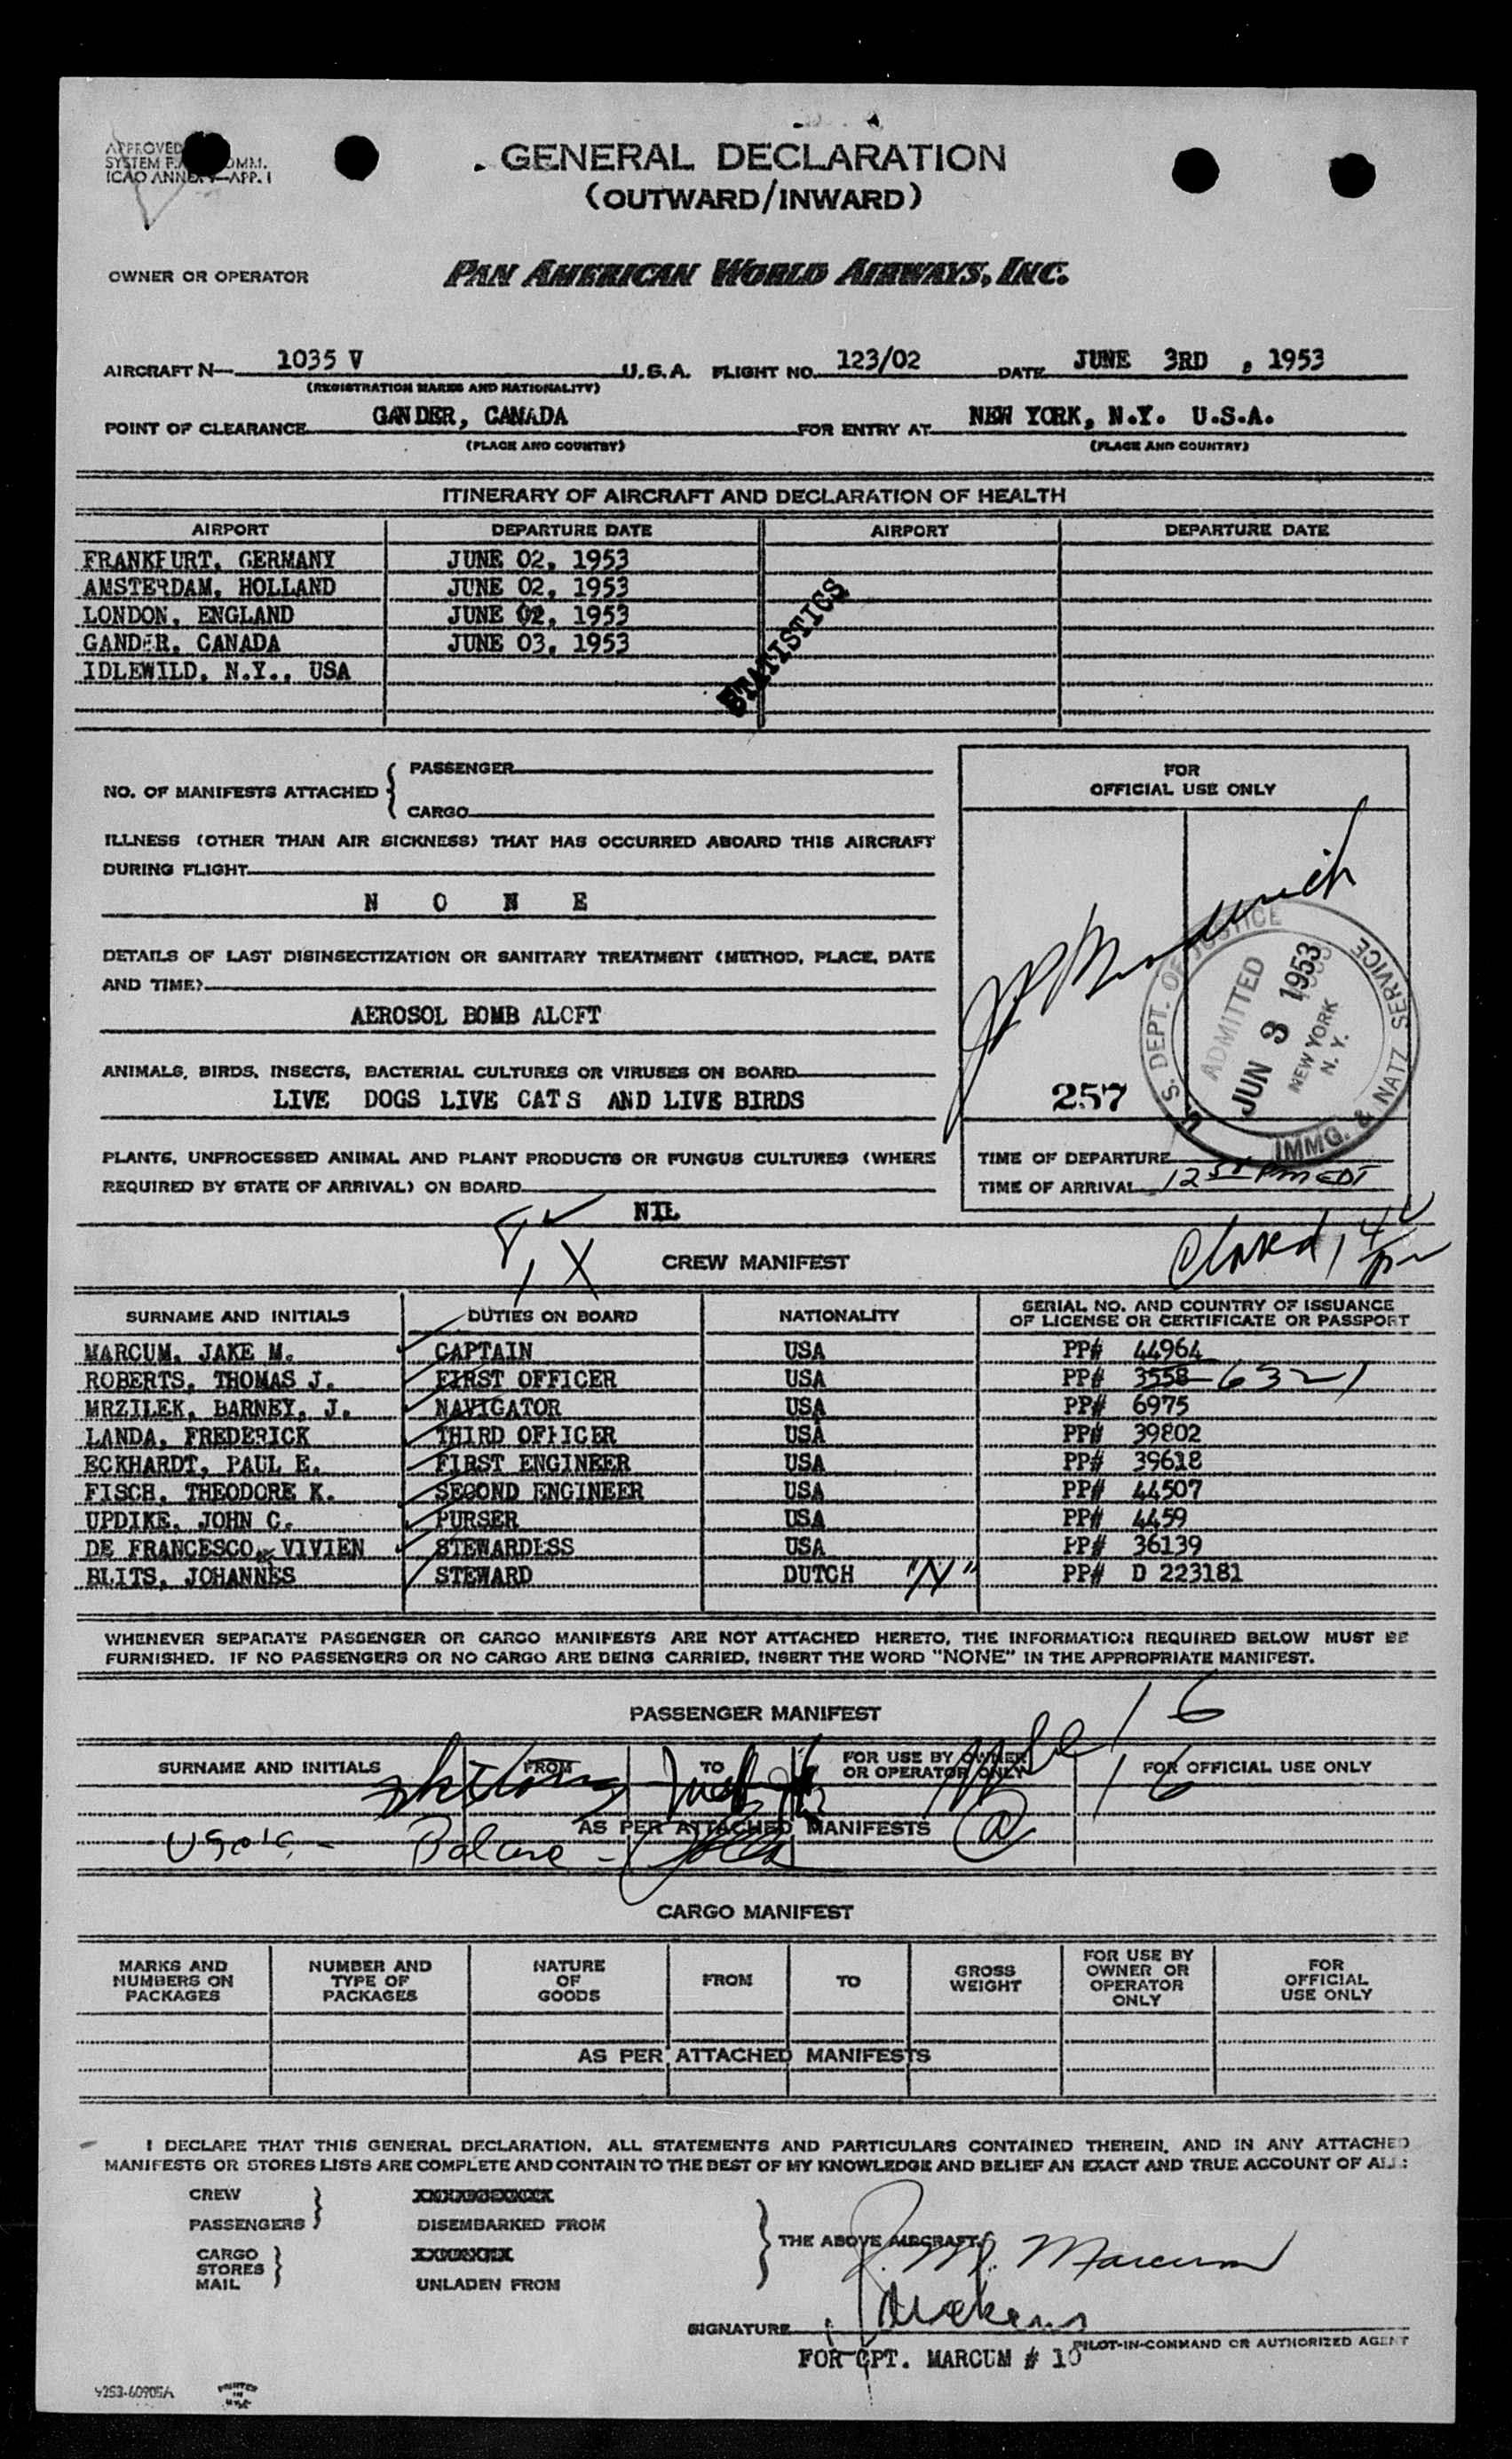 APPROVED
SYSTEM F. COMM.
ICAO ANNEX —APP. 1
GENERAL DECLARATION
(OUTWARD/INWARD)
OWNER OR OPERATOR PAN AMERICAN WORLD AIRWAYS, INC.
AIRCRAFT N— 1035 V U.S.A. FLIGHT NO. 123/02 DATE JUNE 3RD , 1953
(REGISTRATION MARKS AND NATIONALITY)
POINT OF CLEARANCE GANDER, CANADA FOR ENTRY AT NEW YORK, N.Y. U.S.A.
(PLACE AND COUNTRY) (PLACE AND COUNTRY)
ITINERARY OF AIRCRAFT AND DECLARATION OF HEALTH
AIRPORT DEPARTURE DATE AIRPORT DEPARTURE DATE
FRANKFURT, GERMANY JUNE 02, 1953
AMSTERDAM, HOLLAND JUNE 02, 1953
LONDON, ENGLAND JUNE 02, 1953
GANDER, CANADA JUNE 03, 1953
IDLEWILD, N.Y., USA
STATISTICS
NO. OF MANIFESTS ATTACHED { PASSENGER
CARGO
ILLNESS (OTHER THAN AIR SICKNESS) THAT HAS OCCURRED ABOARD THIS AIRCRAFT
DURING FLIGHT
N O N E
DETAILS OF LAST DISINSECTIZATION OR SANITARY TREATMENT (METHOD, PLACE, DATE
AND TIME)
AEROSOL BOMB ALOFT
ANIMALS, BIRDS, INSECTS, BACTERIAL CULTURES OR VIRUSES ON BOARD
LIVE DOGS LIVE CATS AND LIVE BIRDS
PLANTS, UNPROCESSED ANIMAL AND PLANT PRODUCTS OR FUNGUS CULTURES (WHERE
REQUIRED BY STATE OF ARRIVAL) ON BOARD
NIL
FOR
OFFICIAL USE ONLY
257
U.S. DEPT. OF JUSTICE
IMMG. & NATZ SERVICE
ADMITTED
JUN 3 1953
NEW YORK
N. Y.
TIME OF DEPARTURE
TIME OF ARRIVAL 12 PM EDT
Closed
X
CREW MANIFEST
SURNAME AND INITIALS DUTIES ON BOARD NATIONALITY SERIAL NO. AND COUNTRY OF ISSUANCE
OF LICENSE OR CERTIFICATE OR PASSPORT
MARCUM, JAKE M. CAPTAIN USA PP# 44964
ROBERTS, THOMAS J. FIRST OFFICER USA PP# 3558 6321
MRZILEK, BARNEY, J. NAVIGATOR USA PP# 6975
LANDA, FREDERICK THIRD OFFICER USA PP# 39802
ECKHARDT, PAUL E. FIRST ENGINEER USA PP# 39618
FISCH, THEODORE K. SECOND ENGINEER USA PP# 44507
UPDIKE, JOHN C. PURSER USA PP# 4459
DE FRANCESCO, VIVIEN STEWARDESS USA PP# 36139
BLITS, JOHANNES STEWARD DUTCH "N" PP# D 223181
WHENEVER SEPARATE PASSENGER OR CARGO MANIFESTS ARE NOT ATTACHED HERETO, THE INFORMATION REQUIRED BELOW MUST BE
FURNISHED. IF NO PASSENGERS OR NO CARGO ARE BEING CARRIED, INSERT THE WORD "NONE" IN THE APPROPRIATE MANIFEST.
PASSENGER MANIFEST
SURNAME AND INITIALS FROM TO FOR USE BY OWNER
OR OPERATOR ONLY FOR OFFICIAL USE ONLY
AS PER ATTACHED MANIFESTS
CARGO MANIFEST
MARKS AND
NUMBERS ON
PACKAGES
NUMBER AND
TYPE OF
PACKAGES
NATURE
OF
GOODS
FROM
TO
GROSS
WEIGHT
FOR USE BY
OWNER OR
OPERATOR
ONLY
FOR
OFFICIAL
USE ONLY
AS PER ATTACHED MANIFESTS
I DECLARE THAT THIS GENERAL DECLARATION, ALL STATEMENTS AND PARTICULARS CONTAINED THEREIN, AND IN ANY ATTACHED
MANIFESTS OR STORES LISTS ARE COMPLETE AND CONTAIN TO THE BEST OF MY KNOWLEDGE AND BELIEF AN EXACT AND TRUE ACCOUNT OF ALL:
CREW
PASSENGERS } DISEMBARKED FROM
CARGO
STORES
MAIL } UNLADEN FROM
} THE ABOVE AIRCRAFT.
J. M. Marcum
SIGNATURE
PILOT-IN-COMMAND OR AUTHORIZED AGENT
FOR CPT. MARCUM # 10
9253-60905A
PRINTED
IN